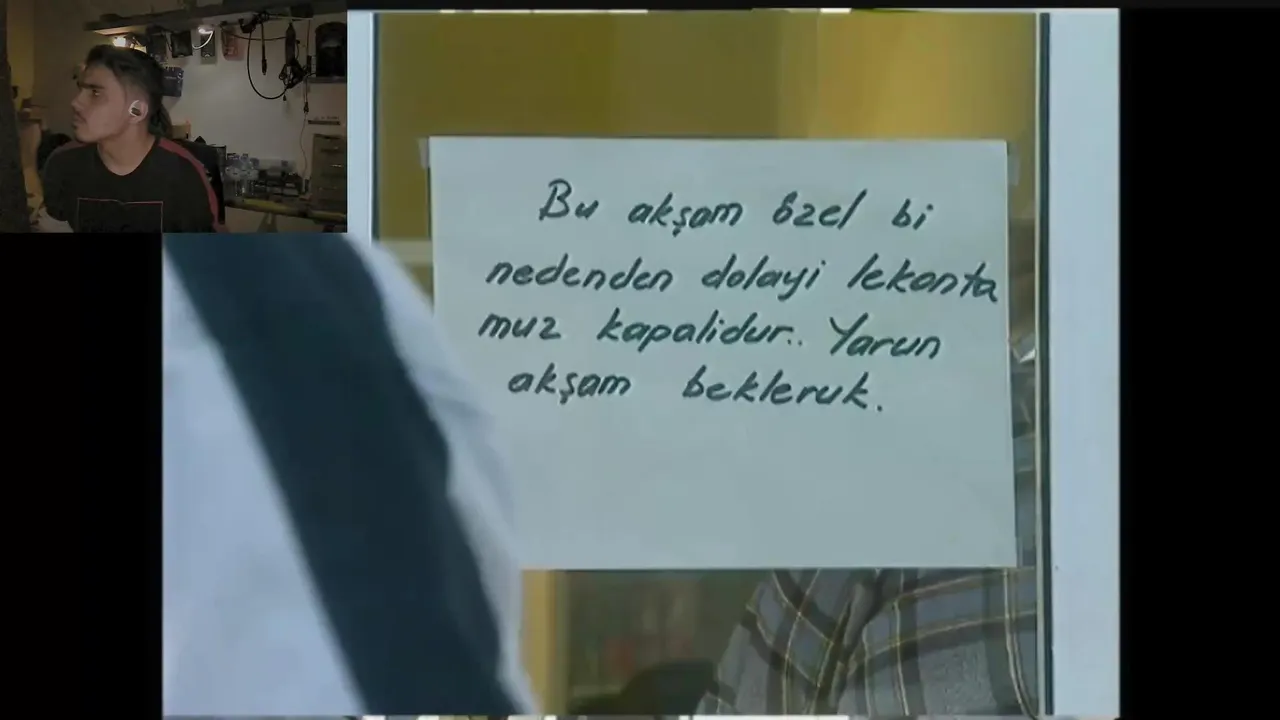 Bu akşam özel bi
nedenden dolayi lekonta
muz kapalidur.. Yarun
akşam bekleruk.